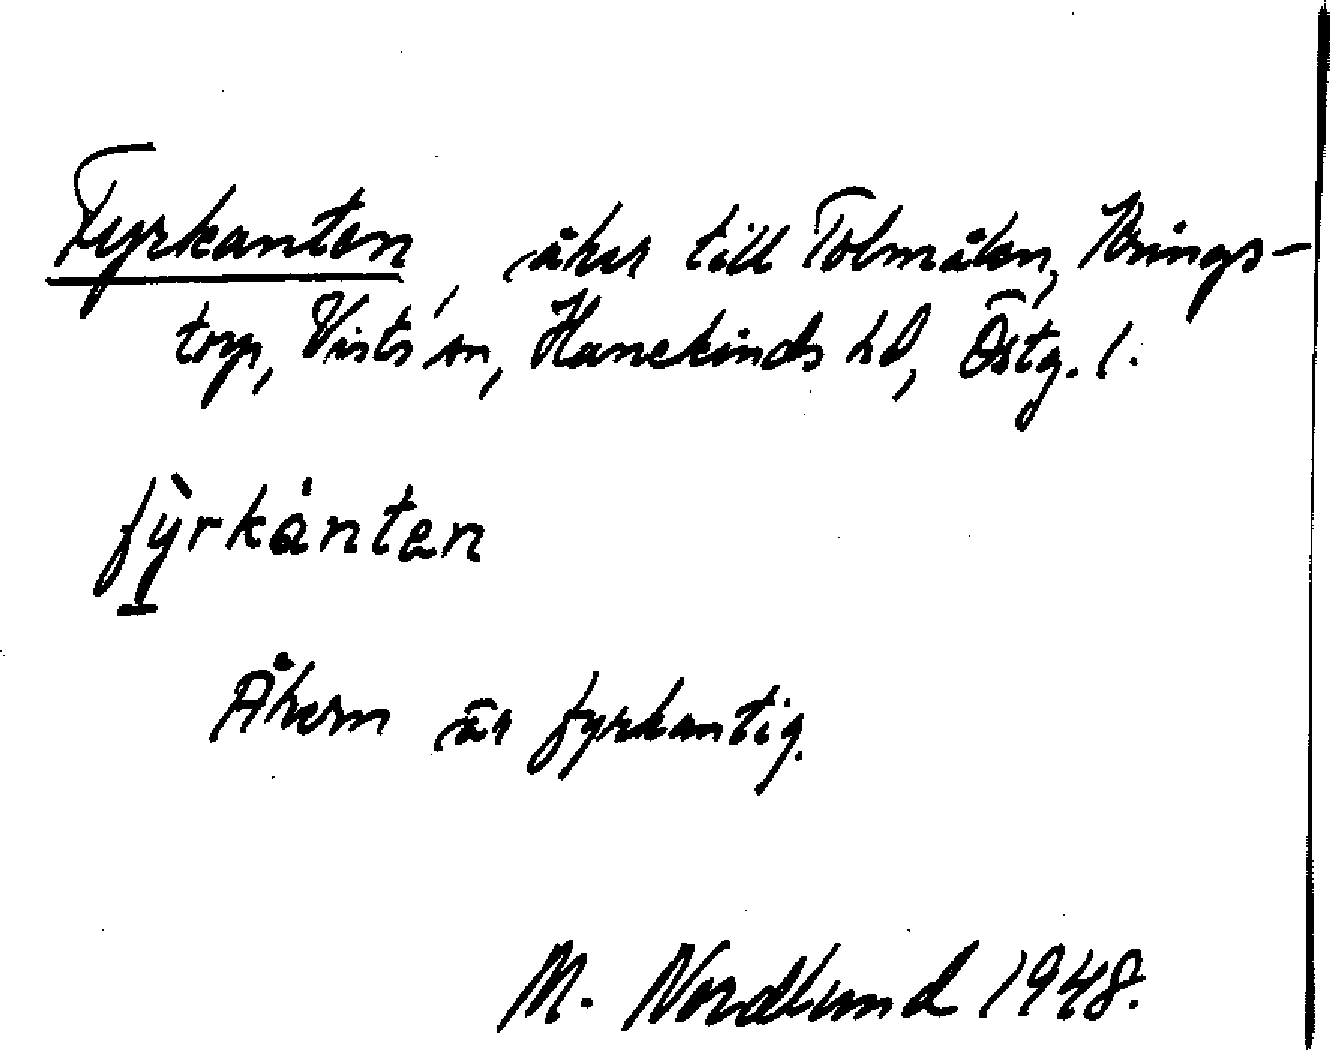 Fyrkanten, åker till Tolmålen, Krings-
torp, Vists sn, Hanekinds hd, Östg. l.
fỳ̱rkánten
Åkern är fyrkantig.
M. Nordlund 1948.